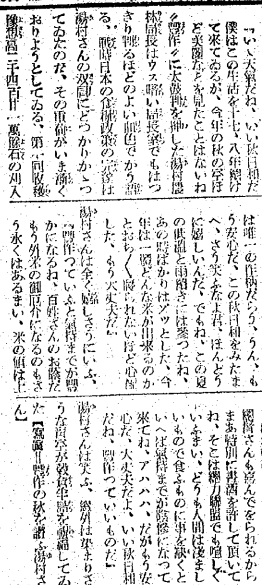 『いゝ天氣だね、いい秋日和だ
僕はこの生活を十七、八年續け
て來てゐるが、今年の秋の空ほ
ど美麗なのを見たことはないね
〃豐作〃に太鼓判を押した湯村農
林局長はウス暗い局長室でもはつ
きり判るほどのよい血色でかう語
る、戰時日本の食糧政策の重荷は
湯村さんの双肩にどつかりかゝつ
てゐたのだ、その重荷がいま漸く
おりようとしてゐる、第一回收穫
豫想高二千四百廿一萬石の刈入
は唯一の作柄だらう、うん、も
う安心だ、この秋日和をみたま
へ、さう笑ふなよ君、ほんとう
に嬉しいんだ、でもね、この夏
の低溫と雨續きには參つたね、
あの時ばかりはゾツとした、今
年は一體どんな米が出來るのか
とおち〱寢られないほど心配
した、もう大丈夫だ』
湯村さんは全く嬉しさうにいふ、
『豐作つていふと氣持までが豐
かになるね、百姓さんのお蔭だ
もう外米の御厄介になるのもさ
う永くはあるまい、米の値は上
總督さんも喜んでをられるから
まあ特別に晝酒を許して頂いて
ね、そこは總力聯盟でも喧しく
いふまい、どうも人間は淺まし
いもので食ふものに事を缺くと
いへば氣持までが陰慘になつて
來てね、アハハハ、だがもう安
心だ、大丈夫だよ、いい秋日和
だね、豐作つていいものだ』
湯村さんは笑ふ、窓外は
うな青空が
た【寫眞=豐作の秋を語る湯村さ
ん】